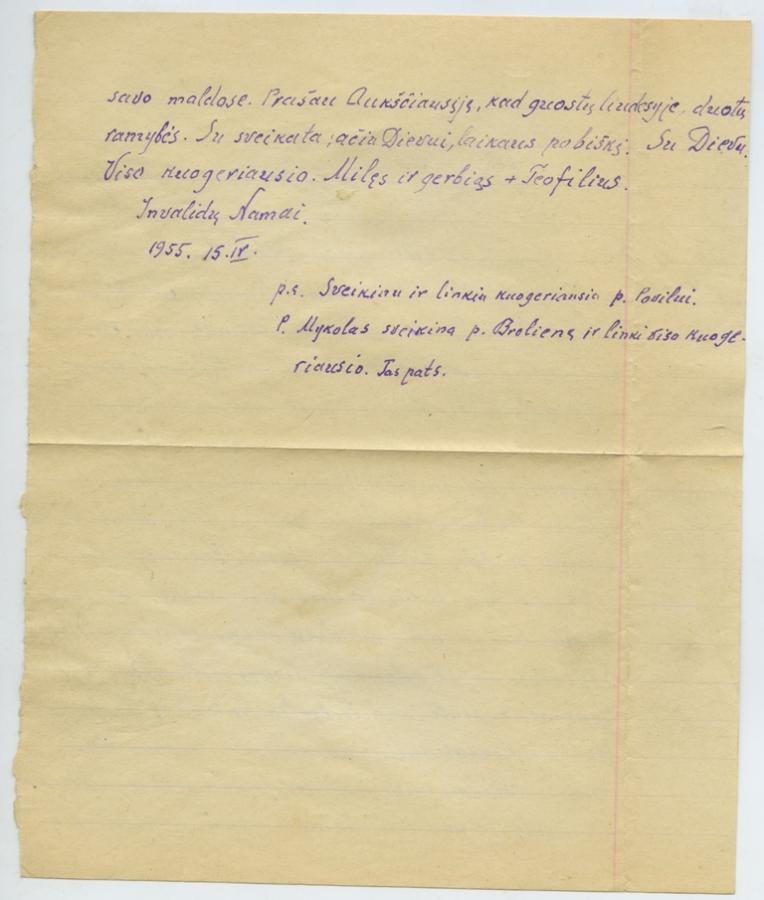 savo maldose. Prašau Aukščiausiąjį, kad guostų liūdesyje, duotų
ramybės. Su sveikata, ačiu Dievui, laikaus pobiškį. Su Dievu.
Viso kuogeriausio. Milįs ir gerbiąs + Teofilius.
Invalidų Namai.
1955. 15.IV.
p.s. Sveikinu ir linkiu kuogeriausia p. Povilui.
P. Mykolas sveikina p. Brolieną ir linki viso kuoge-
riausio. Tas pats.